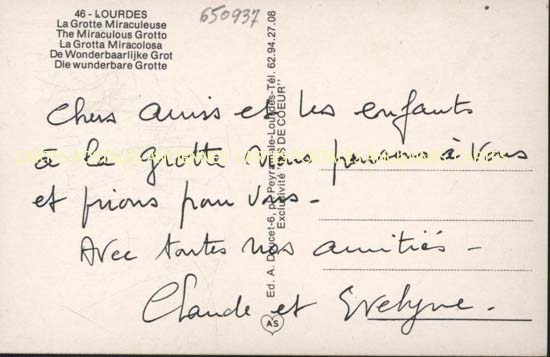 46 - LOURDES
La Grotte Miraculeuse
The Miraculous Grotto
La Grotta Miracolosa
De Wonderbaarlijke Grot
Die wunderbare Grotte
650937
Chers amis et les enfants
à la grotte nous pensons à vous
et prions pour vous -
Avec toutes nos amitiés -
Claude et Evelyne.
Ed. A. Doucet-6, Peyramale-Lourdes-Tél. 62.94.27.08
Exclusivité DE COEUR"
AS